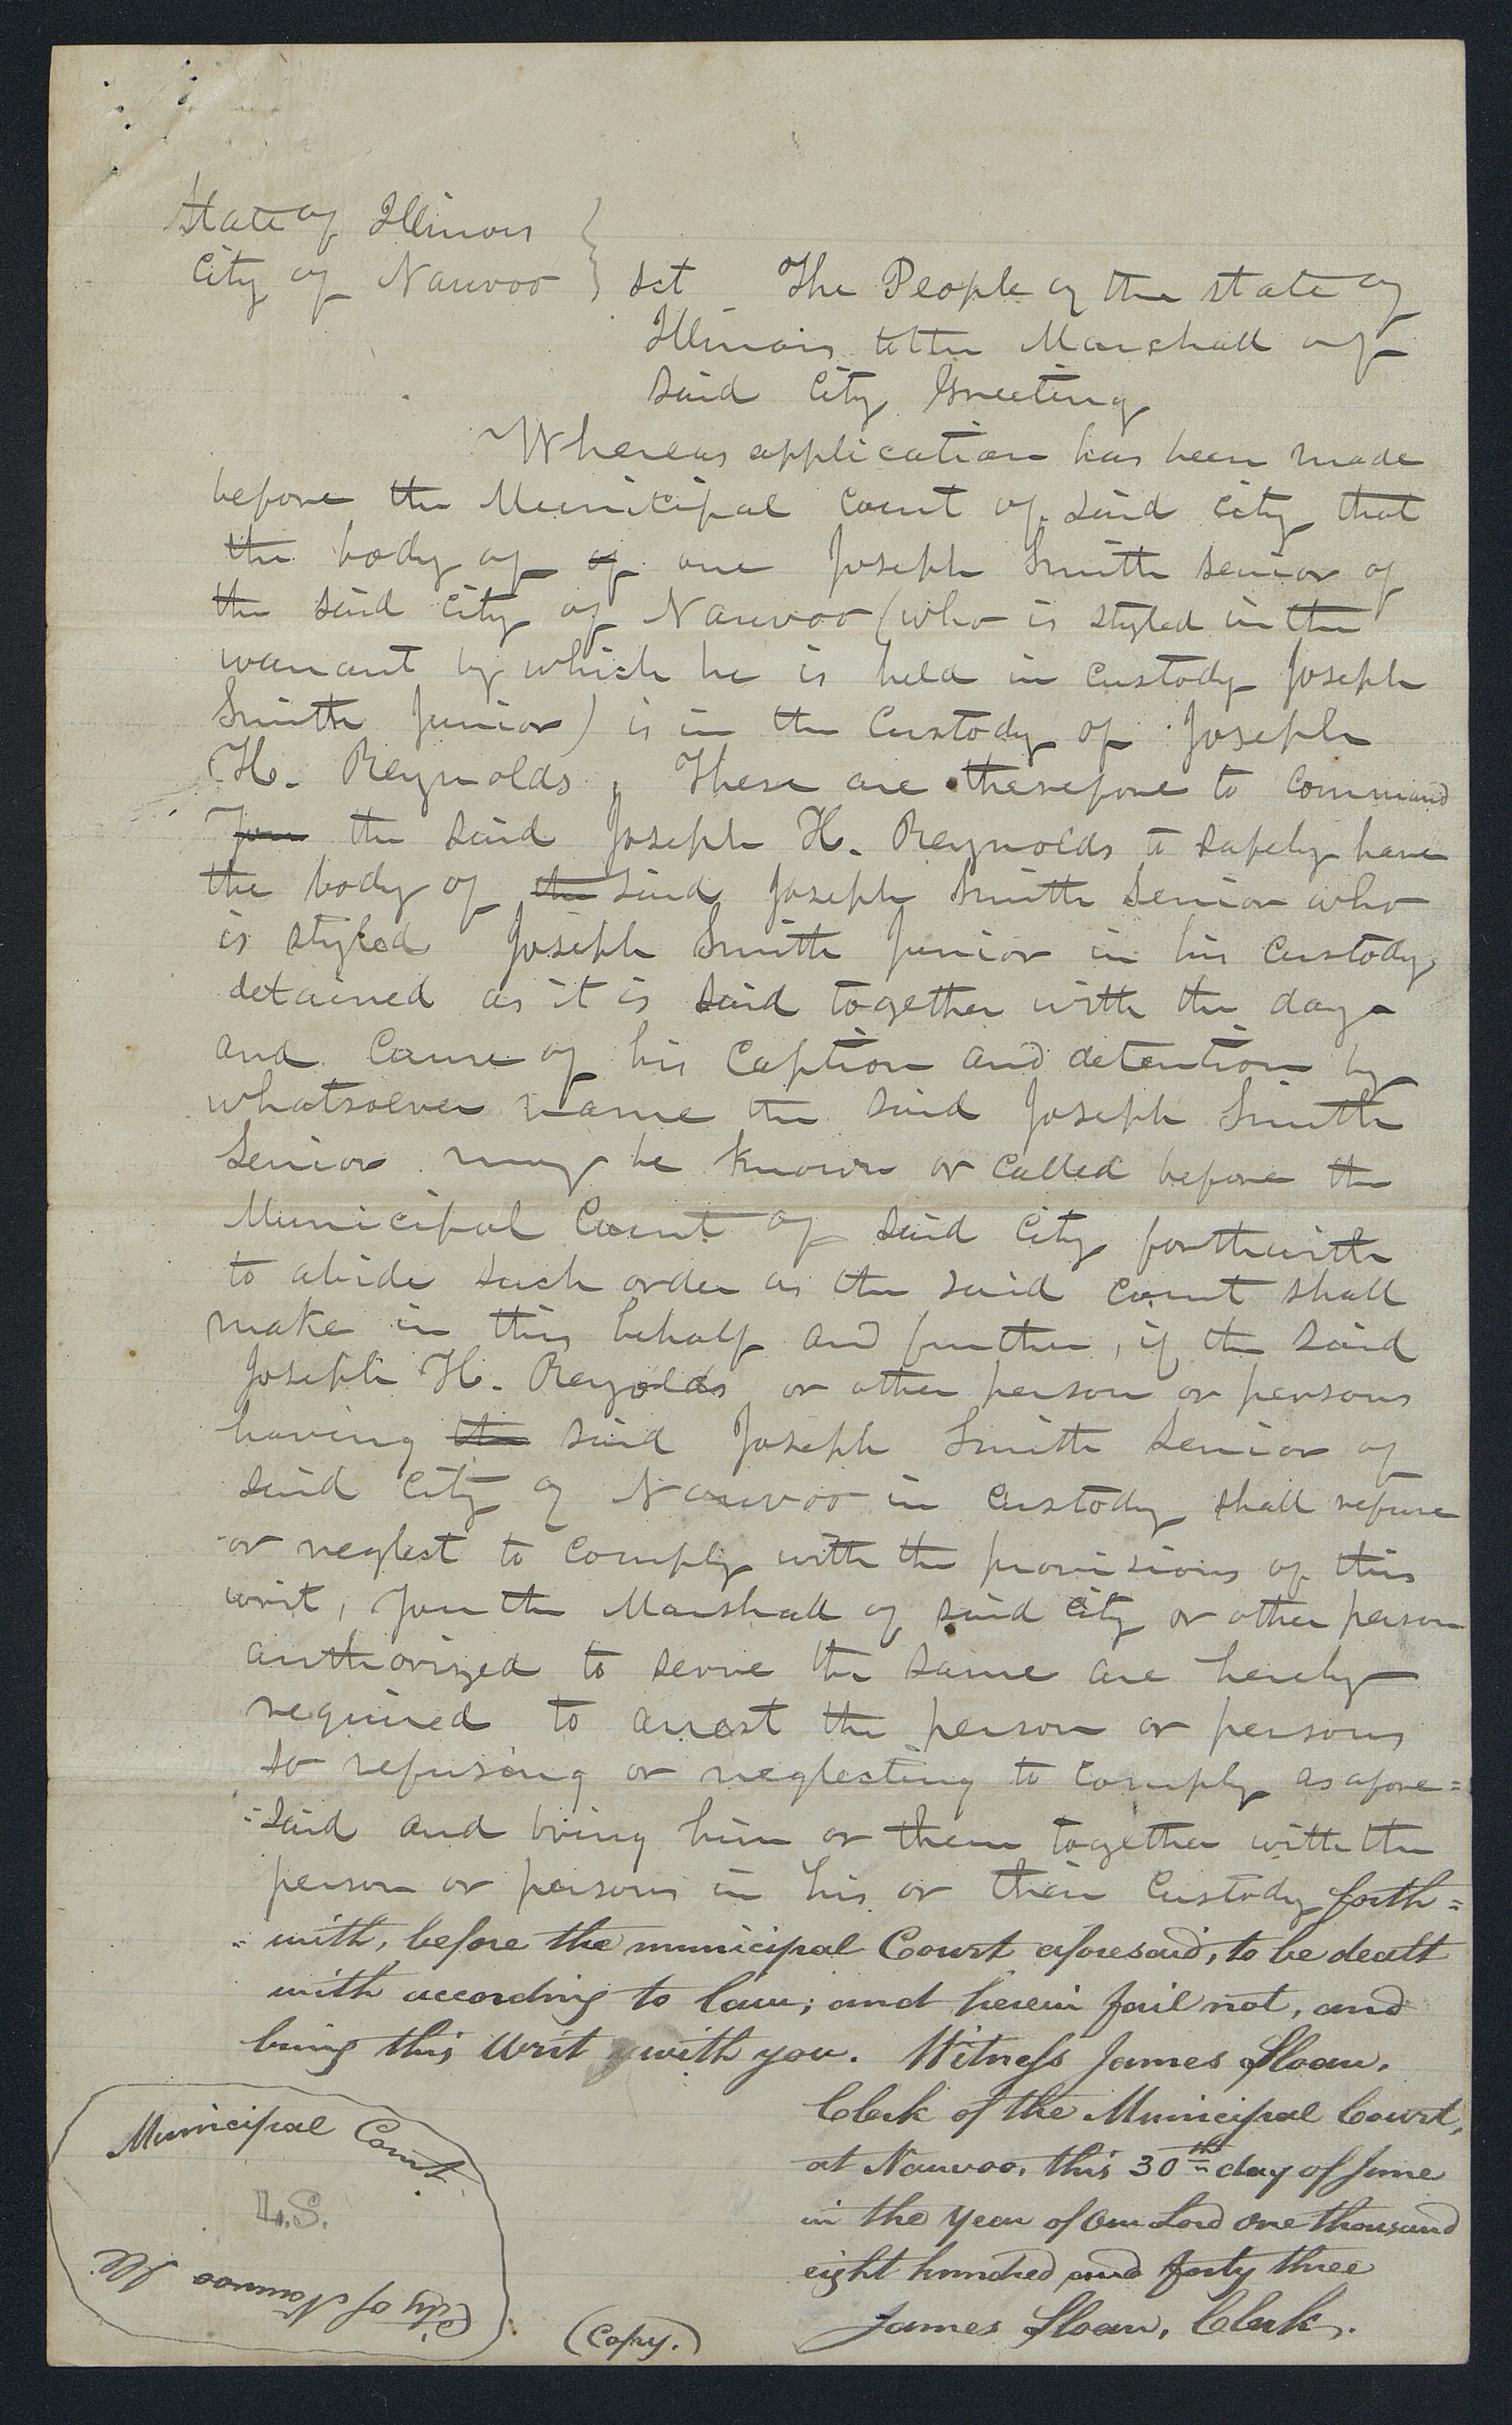 State of Illinois
City of Nauvoo } Sct The People of the state of
Illinois to the Marshall of
said City Greeting
Whereas application has been made
before the Municipal Court of said city that
the body of of one Joseph Smith senior of
the said city of Nauvoo (who is styled in the
warrant by which he is held in custody Joseph
Smith Junior) is in the Custody of Joseph
H. Reynolds, These are therefore to command
You the said Joseph H. Reynolds to safely have
the body of the said Joseph Smith Senior who
is styled Joseph Smith Junior in his custody
detained as it is said together with the day
and Cause of his Caption and detention by
whatsoever name the said Joseph Smith
Senior may be known or called before the
Municipal Court of said City forthwith
to abide such order as the said court shall
make in this behalf and further, if the said
Joseph H. Reynolds or other person or persons
having the said Joseph Smith Senior of
said City of Nauvoo in custody shall refuse
or neglect to comply with the provisions of this
writ, You the Marshall of said city or other person
authorized to serve the same are hereby
required to arrest the person or persons
so refusing or neglecting to comply as afore=
=said and bring him or them together with the
person or persons in his or their Custody forth=
=with, before the municipal Court aforesaid, to be dealt
with according to law; and herein fail not, and
bring this Writ with you. Witness James Sloan,
Clerk of the Municipal Court,
at Nauvoo, this 30th day of June
in the Year of Our Lord One thousand
eight hundred and forty three
James Sloan, Clerk.
Municipal Court
L.S.
City of Nauvoo Ill.
(Copy.)